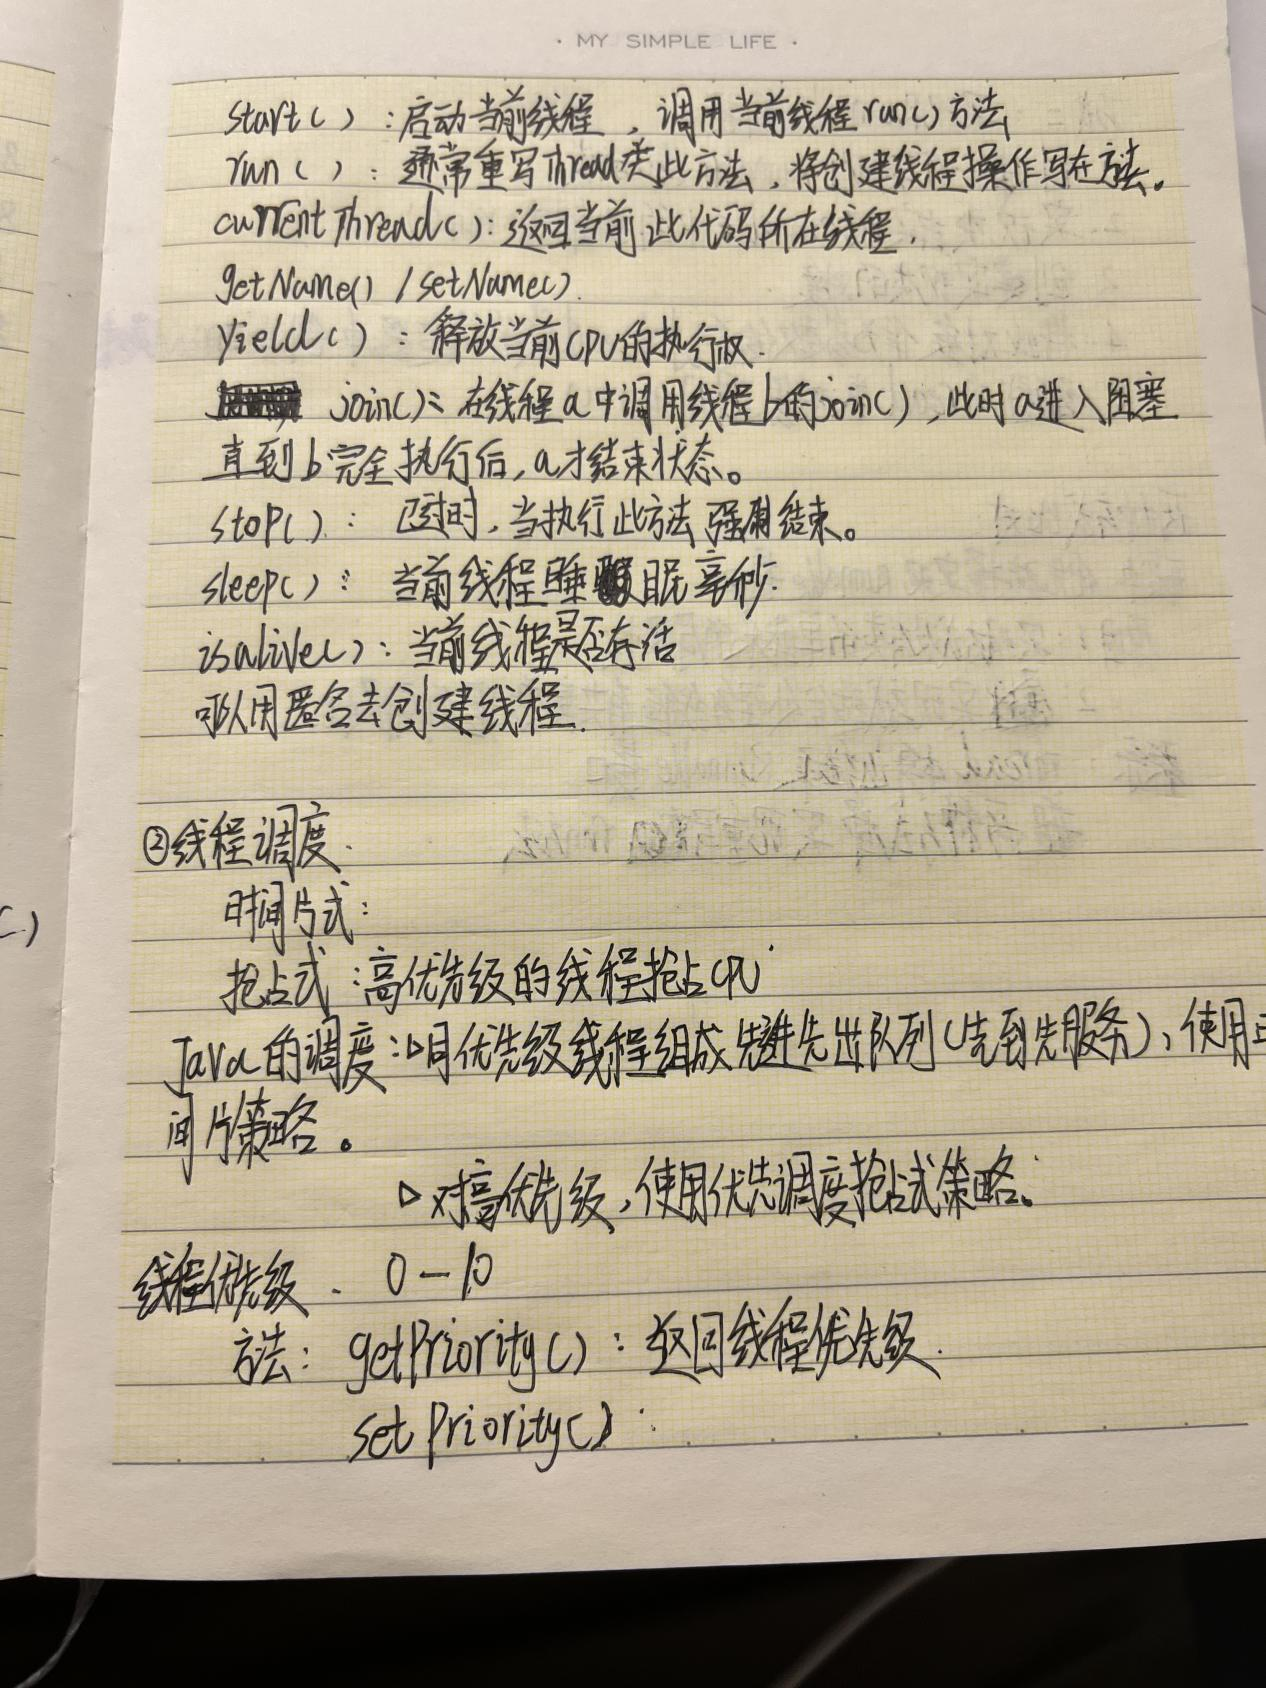 · MY SIMPLE LIFE ·
start()：启动当前线程，调用当前线程run()方法
run()：通常重写Thread类此方法，将创建线程操作写在方法。
currentThread()：返回当前此代码所在线程.
getName() / setName()
yield()：释放当前CPU的执行权.
join()：在线程a中调用线程b的join()，此时a进入阻塞
直到b完全执行后，a才结束状态。
stop()：已过时，当执行此方法强制结束。
sleep()：当前线程睡眠毫秒.
isalive()：当前线程是否存活
可以用匿名去创建线程.
②线程调度.
时间片式：
抢占式：高优先级的线程抢占CPU
Java的调度：▷同优先级线程组成先进先出队列(先到先服务)，使用
间片策略。
▷对高优先级，使用优先调度抢占式策略。
线程优先级. 0－10
方法：getPriority()：返回线程优先级.
setPriority()：
()